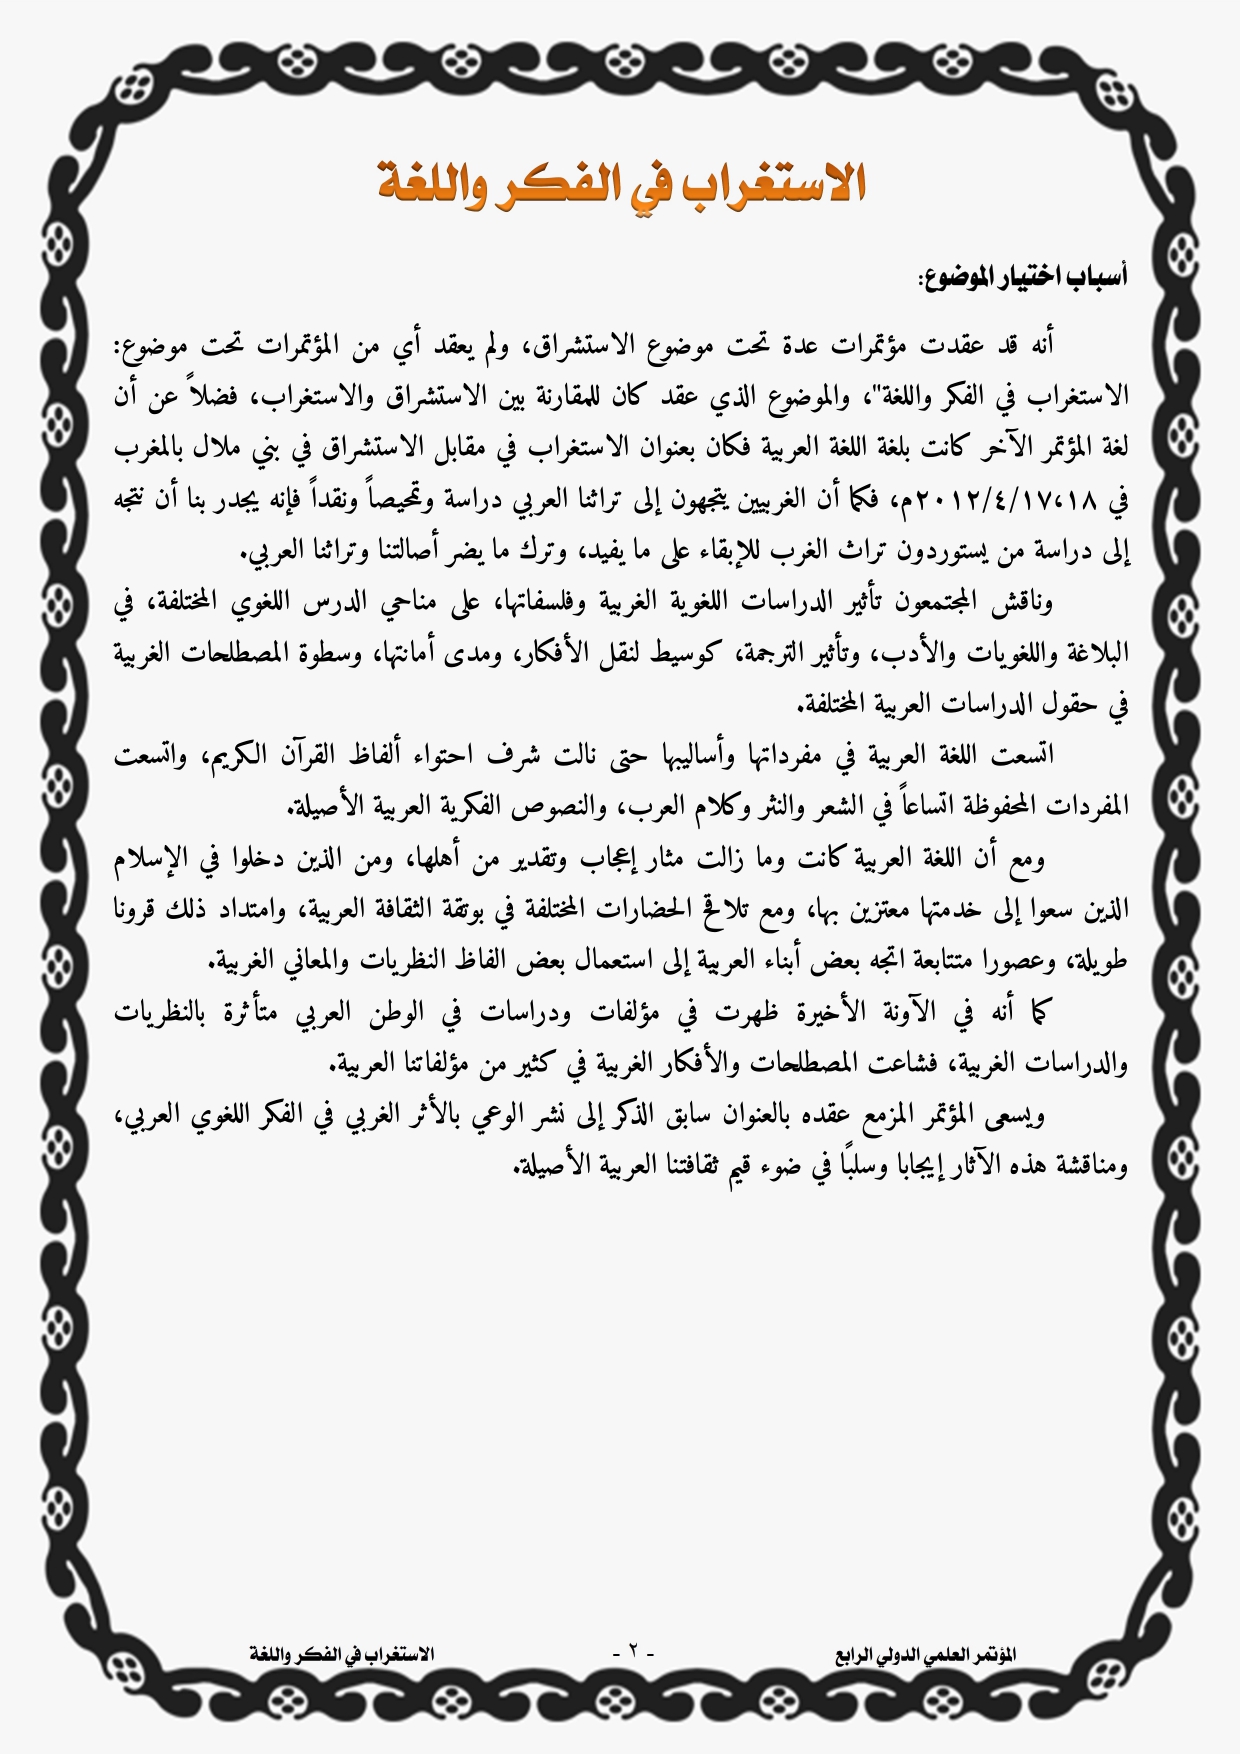 الاستغراب في الفكر واللغة
أسباب اختيار الموضوع:
أنه قد عقدت مؤتمرات عدة تحت موضوع الاستشراق، ولم يعقد أي من المؤتمرات تحت موضوع:
الاستغراب في الفكر واللغة"، والموضوع الذي عقد كان للمقارنة بين الاستشراق والاستغراب، فضلاً عن أن
لغة المؤتمر الآخر كانت بلغة اللغة العربية فكان بعنوان الاستغراب في مقابل الاستشراق في بني ملال بالمغرب
في ١٧،١٨/٤/٢٠١٢م، فكما أن الغربيين يتجهون إلى تراثنا العربي دراسة وتمحيصاً ونقداً فإنه يجدر بنا أن نتجه
إلى دراسة من يستوردون تراث الغرب للإبقاء على ما يفيد، وترك ما يضر أصالتنا وتراثنا العربي.
وناقش المجتمعون تأثير الدراسات اللغوية الغربية وفلسفاتها، على مناحي الدرس اللغوي المختلفة، في
البلاغة واللغويات والأدب، وتأثير الترجمة، كوسيط لنقل الأفكار، ومدى أمانتها، وسطوة المصطلحات الغربية
في حقول الدراسات العربية المختلفة.
اتسعت اللغة العربية في مفرداتها وأساليبها حتى نالت شرف احتواء ألفاظ القرآن الكريم، واتسعت
المفردات المحفوظة اتساعاً في الشعر والنثر وكلام العرب، والنصوص الفكرية العربية الأصيلة.
ومع أن اللغة العربية كانت وما زالت مثار إعجاب وتقدير من أهلها، ومن الذين دخلوا في الإسلام
الذين سعوا إلى خدمتها معتزين بها، ومع تلاقح الحضارات المختلفة في بوتقة الثقافة العربية، وامتداد ذلك قرونا
طويلة، وعصورا متتابعة اتجه بعض أبناء العربية إلى استعمال بعض الفاظ النظريات والمعاني الغربية.
كما أنه في الآونة الأخيرة ظهرت في مؤلفات ودراسات في الوطن العربي متأثرة بالنظريات
والدراسات الغربية، فشاعت المصطلحات والأفكار الغربية في كثير من مؤلفاتنا العربية.
ويسعى المؤتمر المزمع عقده بالعنوان سابق الذكر إلى نشر الوعي بالأثر الغربي في الفكر اللغوي العربي،
ومناقشة هذه الآثار إيجابا وسلبًا في ضوء قيم ثقافتنا العربية الأصيلة.
المؤتمر العلمي الدولي الرابع - ٢ - الاستغراب في الفكر واللغة